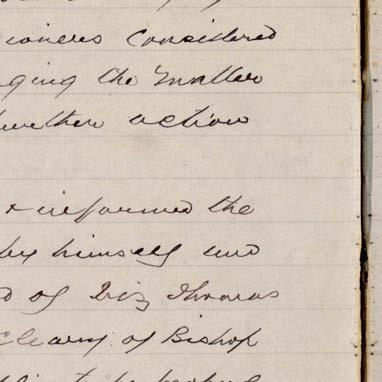 sioners considered
ging the matter
further action
& informed the
by himself and
d of Viz Thomas
Cleary of Bishop